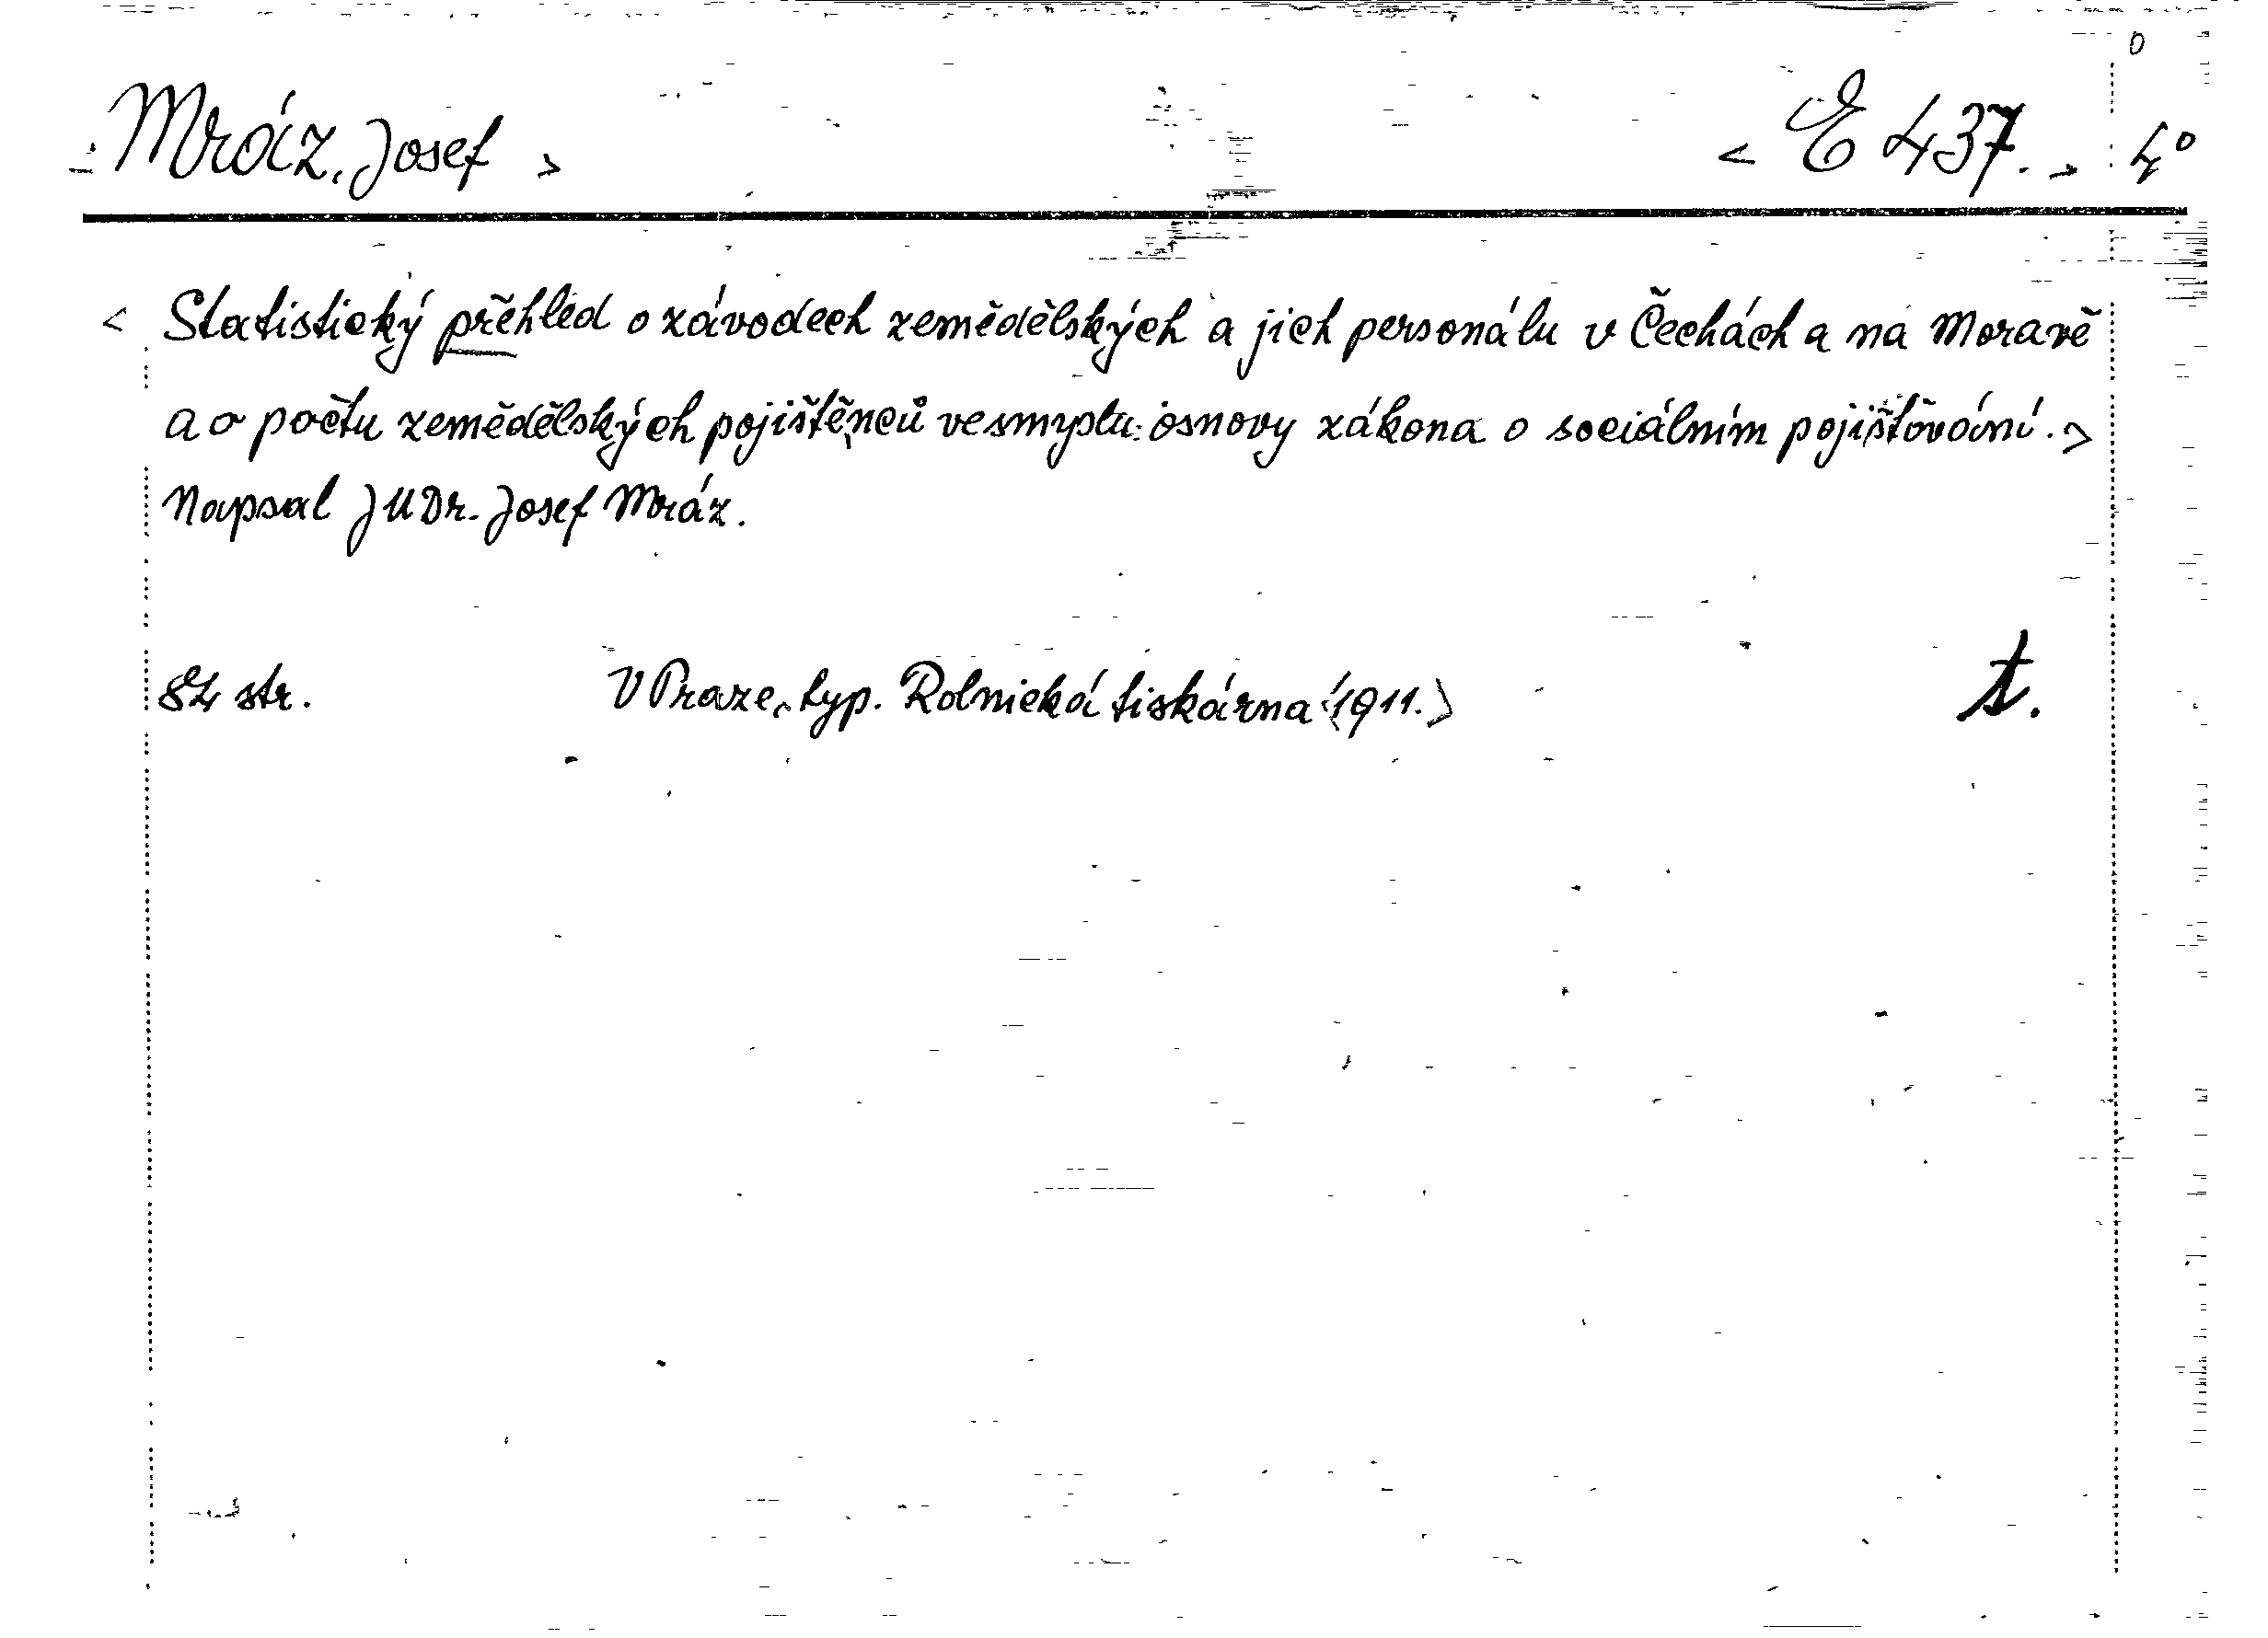 0
Mráz, Josef >
< E 437. > 4°
< Statistický přehled o závodech zemědělských a jich personálu v Čechách a na Moravě
a o počtu zemědělských pojištěnců ve smyslu osnovy zákona o sociálním pojišťování. >
Napsal JUDr. Josef Mráz.
84 str. V Praze, typ. Rolnická tiskárna <1911.> t.